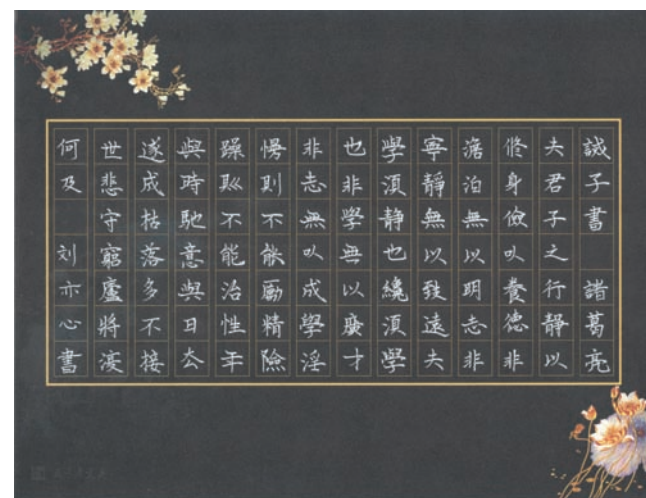 誡子書 諸葛亮
夫君子之行靜以
修身儉以養德非
澹泊無以明志非
寧靜無以致遠夫
學須静也纔須學
也非學無以廣才
非志無以成學淫
慢則不能勵精險
躁則不能治性年
與時馳意與日去
遂成枯落多不接
世悲守窮廬將復
何及 刘亦心書